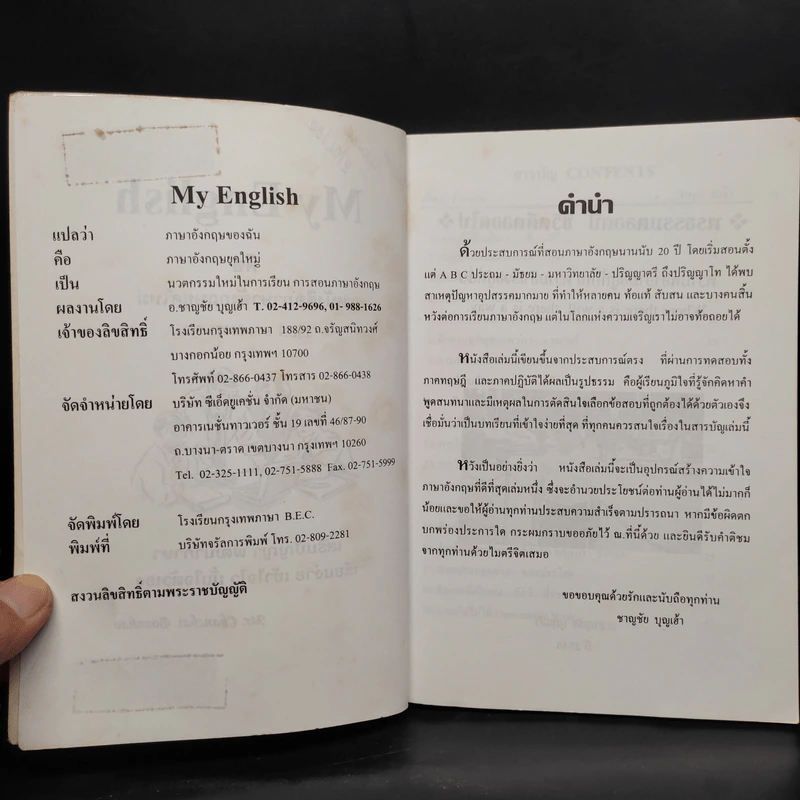 My English
แปลว่า ภาษาอังกฤษของฉัน
คือ ภาษาอังกฤษยุคใหม่
เป็น นวตกรรมใหม่ในการเรียน การสอนภาษาอังกฤษ
ผลงานโดย อ.ชาญชัย บุญเฮ้า T. 02-412-9696, 01- 988-1626
เจ้าของลิขสิทธิ์ โรงเรียนกรุงเทพภาษา 188/92 ถ.จรัญสนิทวงศ์
บางกอกน้อย กรุงเทพฯ 10700
โทรศัพท์ 02-866-0437 โทรสาร 02-866-0438
จัดจำหน่ายโดย บริษัท ซีเอ็ดยูเคชั่น จำกัด (มหาชน)
อาคารเนชั่นทาวเวอร์ ชั้น 19 เลขที่ 46/87-90
ถ.บางนา-ตราด เขตบางนา กรุงเทพฯ 10260
Tel. 02-325-1111, 02-751-5888 Fax. 02-751-5999
จัดพิมพ์โดย โรงเรียนกรุงเทพภาษา B.E.C.
พิมพ์ที่ บริษัทจรัลการพิมพ์ โทร. 02-809-2281
สงวนลิขสิทธิ์ตามพระราชบัญญัติ
คำนำ
ด้วยประสบการณ์ที่สอนภาษาอังกฤษนานนับ 20 ปี โดยเริ่มสอนตั้ง
แต่ A B C ประถม - มัธยม - มหาวิทยาลัย - ปริญญาตรี ถึงปริญญาโท ได้พบ
สาเหตุปัญหาอุปสรรคมากมาย ที่ทำให้หลายคน ท้อแท้ สับสน และบางคนสิ้น
หวังต่อการเรียนภาษาอังกฤษ แต่ในโลกแห่งความเจริญเราไม่อาจท้อถอยได้
หนังสือเล่มนี้เขียนขึ้นจากประสบการณ์ตรง ที่ผ่านการทดสอบทั้ง
ภาคทฤษฎี และภาคปฏิบัติได้ผลเป็นรูปธรรม คือผู้เรียนภูมิใจที่รู้จักคิดหาคำ
พูดสนทนาและมีเหตุผลในการตัดสินใจเลือกข้อสอบที่ถูกต้องได้ด้วยตัวเองจึง
เชื่อมั่นว่าเป็นบทเรียนที่เข้าใจง่ายที่สุด ที่ทุกคนควรสนใจเรื่องในสารบัญเล่มนี้
หวังเป็นอย่างยิ่งว่า หนังสือเล่มนี้จะเป็นอุปกรณ์สร้างความเข้าใจ
ภาษาอังกฤษที่ดีที่สุดเล่มหนึ่ง ซึ่งจะอำนวยประโยชน์ต่อท่านผู้อ่านได้ไม่มากก็
น้อยและขอให้ผู้อ่านทุกท่านประสบความสำเร็จตามปรารถนา หากมีข้อผิดตก
บกพร่องประการใด กระผมกราบขออภัยไว้ ณ.ที่นี้ด้วย และยินดีรับคำติชม
จากทุกท่านด้วยไมตรีจิตเสมอ
ขอขอบคุณด้วยรักและนับถือทุกท่าน
ชาญชัย บุญเฮ้า